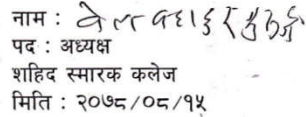 नाम : वेल बहादुर
पद : अध्यक्ष
शहिद स्मारक कलेज
मिति : २०७८/०८/१५